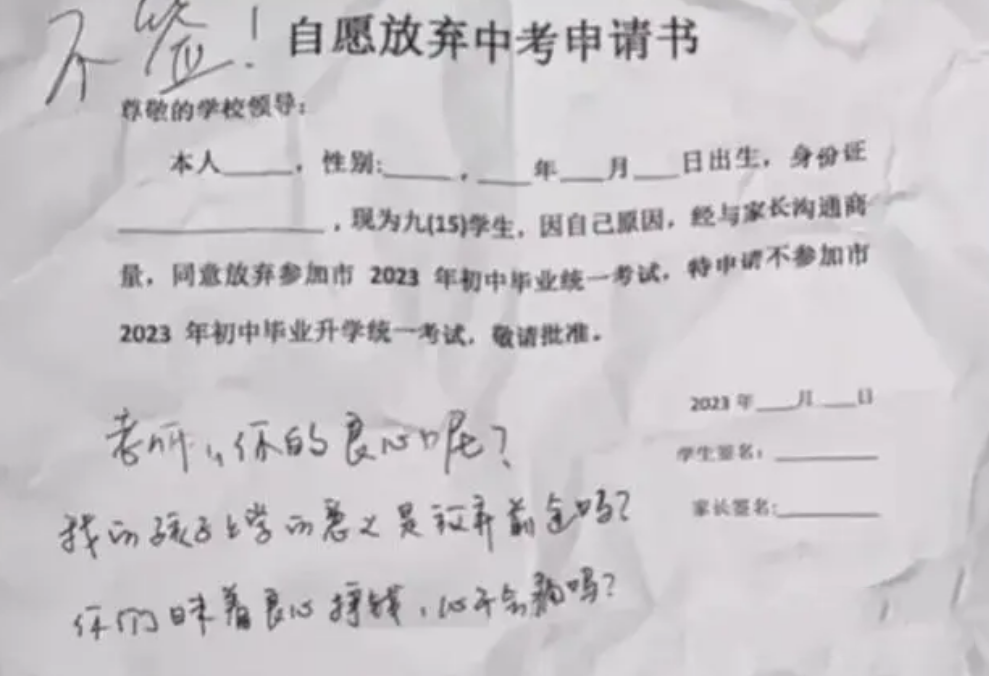 不签！
自愿放弃中考申请书
尊敬的学校领导：
本人____，性别:____，____年___月___日出生，身份证
____________，现为九(15)学生，因自己原因，经与家长沟通商
量，同意放弃参加市 2023 年初中毕业统一考试，特申请不参加市
2023 年初中毕业升学统一考试，敬请批准。
2023 年___月___日
学生签名：______
家长签名:______
老师，你的良心呢？
我的孩子上学的意义是放弃前途吗？
你们昧着良心挣钱，心不会痛吗？